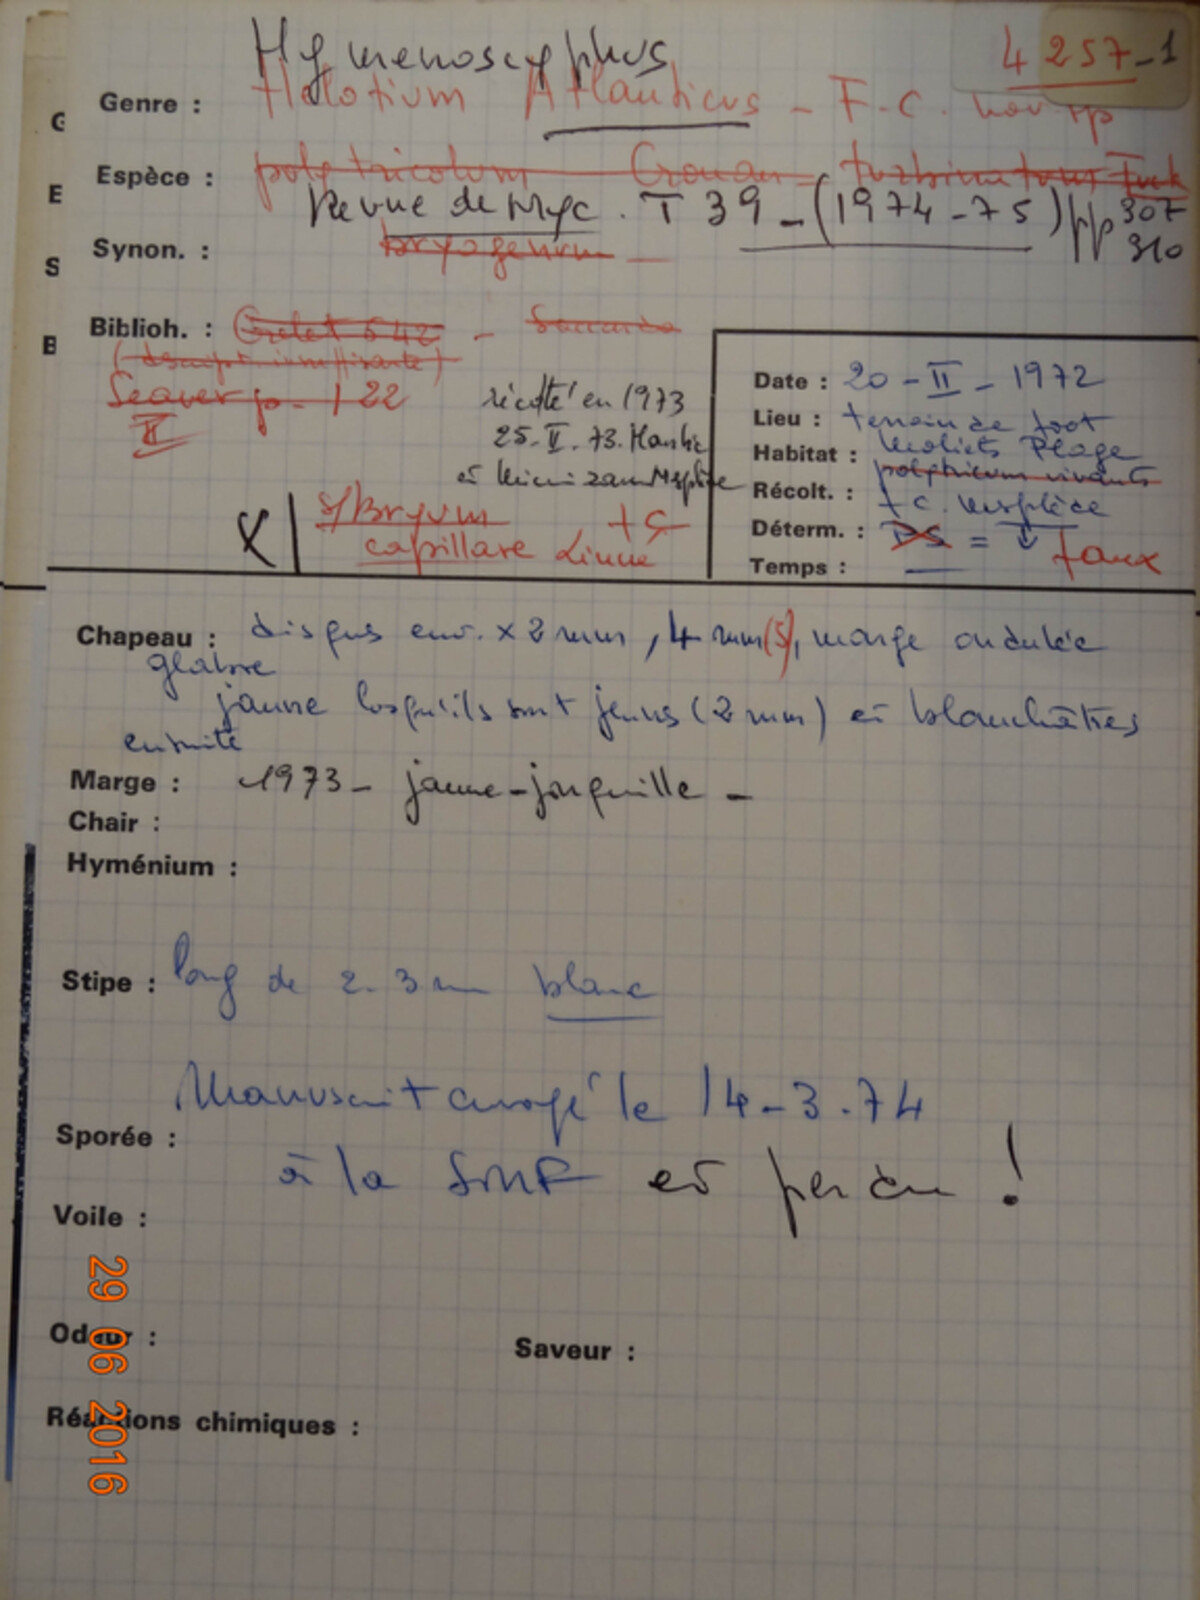 Hymenoscyphus
4257-1
Genre : Helotium Atlanticus - F.C. nov sp
Espèce : polytricolum Crouan - turbinatum Fuck
Revue de Myc. T 39 - (1974-75) pp 307
310
Synon. : bryogenum
Biblioh. : Grelet 542 -
Seaver p. 122
II
récolté en 1973
25-II-73.
et Mimizan
X
s/Bryum + C
capillare Linné
Date : 20 - II - 1972
Lieu : terrain de foot
Habitat : Moliets Plage
polytricum vivants
Récolt. : + C. Mesplède
Déterm. : = ↓ faux
Temps :
G
E
S
B
Chapeau : disques env. x 2 mm, 4 mm (5), marge ondulée
glabre
jaune lorsqu'ils sont jeunes (2 mm) et blanchâtres
ensuite
Marge : 1973 - jaune-jonquille -
Chair :
Hyménium :
Stipe : long de 2-3 mm blanc
Manuscrit envoyé le 14-3-74
Sporée :
à la SMF et perdu !
Voile :
Odeur :
Saveur :
Réactions chimiques :
29 06 2016